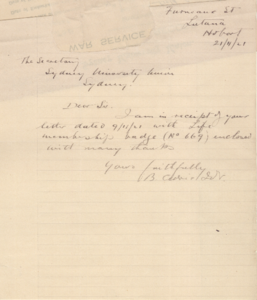 WAR SERVICE
Lutana
Hobart
The Secretary
Sydney University Union
Sydney
Dear Sir
I am in receipt of your
letter dated with Life
membership badge (No 669) enclosed
with many thanks
Yours faithfully
B.